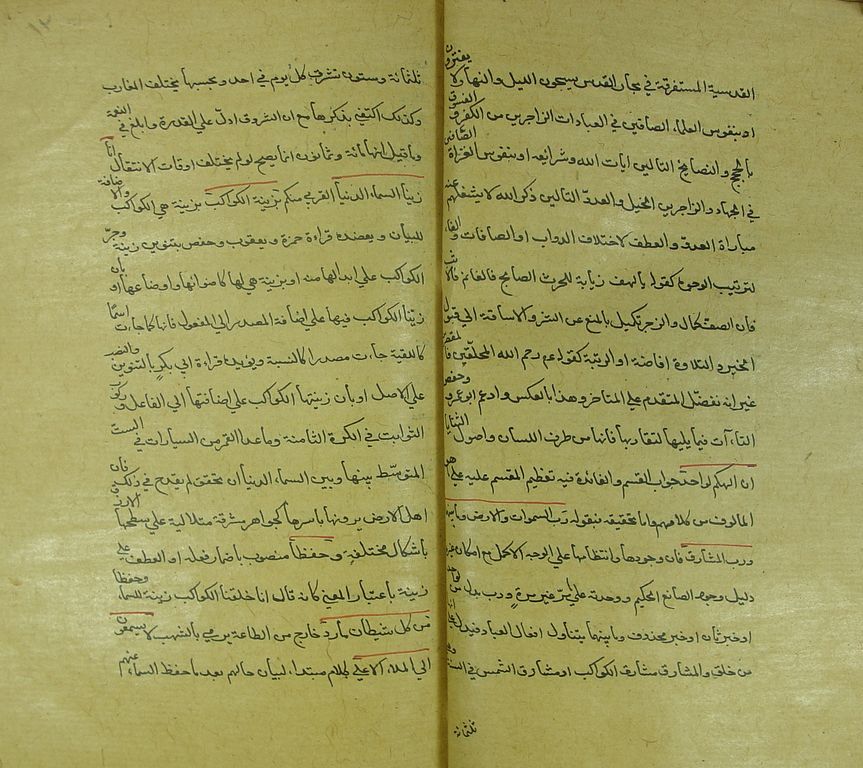 القدسية المستغرقة في بحار القدس يسبحون الليل والنهار ولا يفترون
او بنفوس العلماء الصافين في العبادات الزاجرين عن الكفر والفسوق
بالحجج والنصائح التالين ايات الله وشرايعه او بنفوس الغزاة الصافين
في الجهاد والزاجرين الخيل والعدو التالين ذكر الله لا يشغلهم عنه
مباراة العدو والعطف لاختلاف الدواب او الصافات والفاء
لترتيب الوجود كقوله يا لهف زيابة للحرث الصابح فالغانم فالآئب
فان الصف كمال والزجر تكميل بالمنع عن الشر والاساقة الي قبول
الخير والتلاوة افاضة او الرتبة كقوله عم رحم الله المحلقين فالمقصرين
غير انه لفضل المتقدم علي المتاخر وهذا بالعكس وادغم ابو عمرو وحمزة
التاآت فيما يليها لتقاربها فانها من طرف اللسان واصول الثنايا
ان الهكم لواحد جواب القسم والفائدة فيه تعظيم المقسم عليه علي ما هو
المالوف من كلامهم واما تحقيقه فبقوله رب السموات والارض وما بينهما
ورب المشارق فان وجودها وانتظامها علي الوجه الاكمل مع امكان غيره
دليل وجود الصانع الحكيم ووحدته علي ما مر غير مرة ورب بدل من واحد
او خبر ثان او خبر محذوف وما بينهما يتناول افعال العباد فيدل علي انها
من خلقه والمشارق مشارق الكواكب او مشارق الشمس في السنة وهي
ثلثمائة
ثلثمائة وستون تشرق كل يوم في احد وبحسبها يختلف المغارب
وكذلك اكتفي بذكرها مع ان الشروق ادل علي القدرة وابلغ في النعمة
وما قيل انها مائة وثمانون انما يصح لو لم يختلف اوقات الانتقال انا
زينا السماء الدنيا القربي منكم بزينة الكواكب بزينة هي الكواكب والاضافة
للبيان ويعضده قراءة حمزة ويعقوب وحفص بتنوين زينة وجر
الكواكب علي ابدالها منه او بزينة هي لها كاضوائها واوضاعها او بان
زينا الكواكب فيها علي اضافة المصدر الي المفعول فانها كما جاءت اسما
كالليقة جاءت مصدرا كالنسبة ويؤيده قراءة ابي بكر بالتنوين والنصب
علي الاصل او بان زينتها الكواكب علي اضافتها الي الفاعل وركوب
الثوابت في الكرة الثامنة وما عدا القمر من السيارات في الست
المتوسط بينها وبين السماء الدنيا ان تحقق لم يقدح في ذلك فان
اهل الارض يرونها باسرها كجواهر مشرقة متلالية علي سطحها الازرق
باشكال مختلفة وحفظا منصوب باضمار فعله او العطف علي
زينة باعتبار المعني كانه قال انا خلقنا الكواكب زينة للسماء وحفظا
من كل شيطان مارد خارج من الطاعة برمي بالشهب لا يسمعون
الي الملاء الاعلي كلام مبتداء لبيان حالهم بعد ما حفظ السماء عنهم